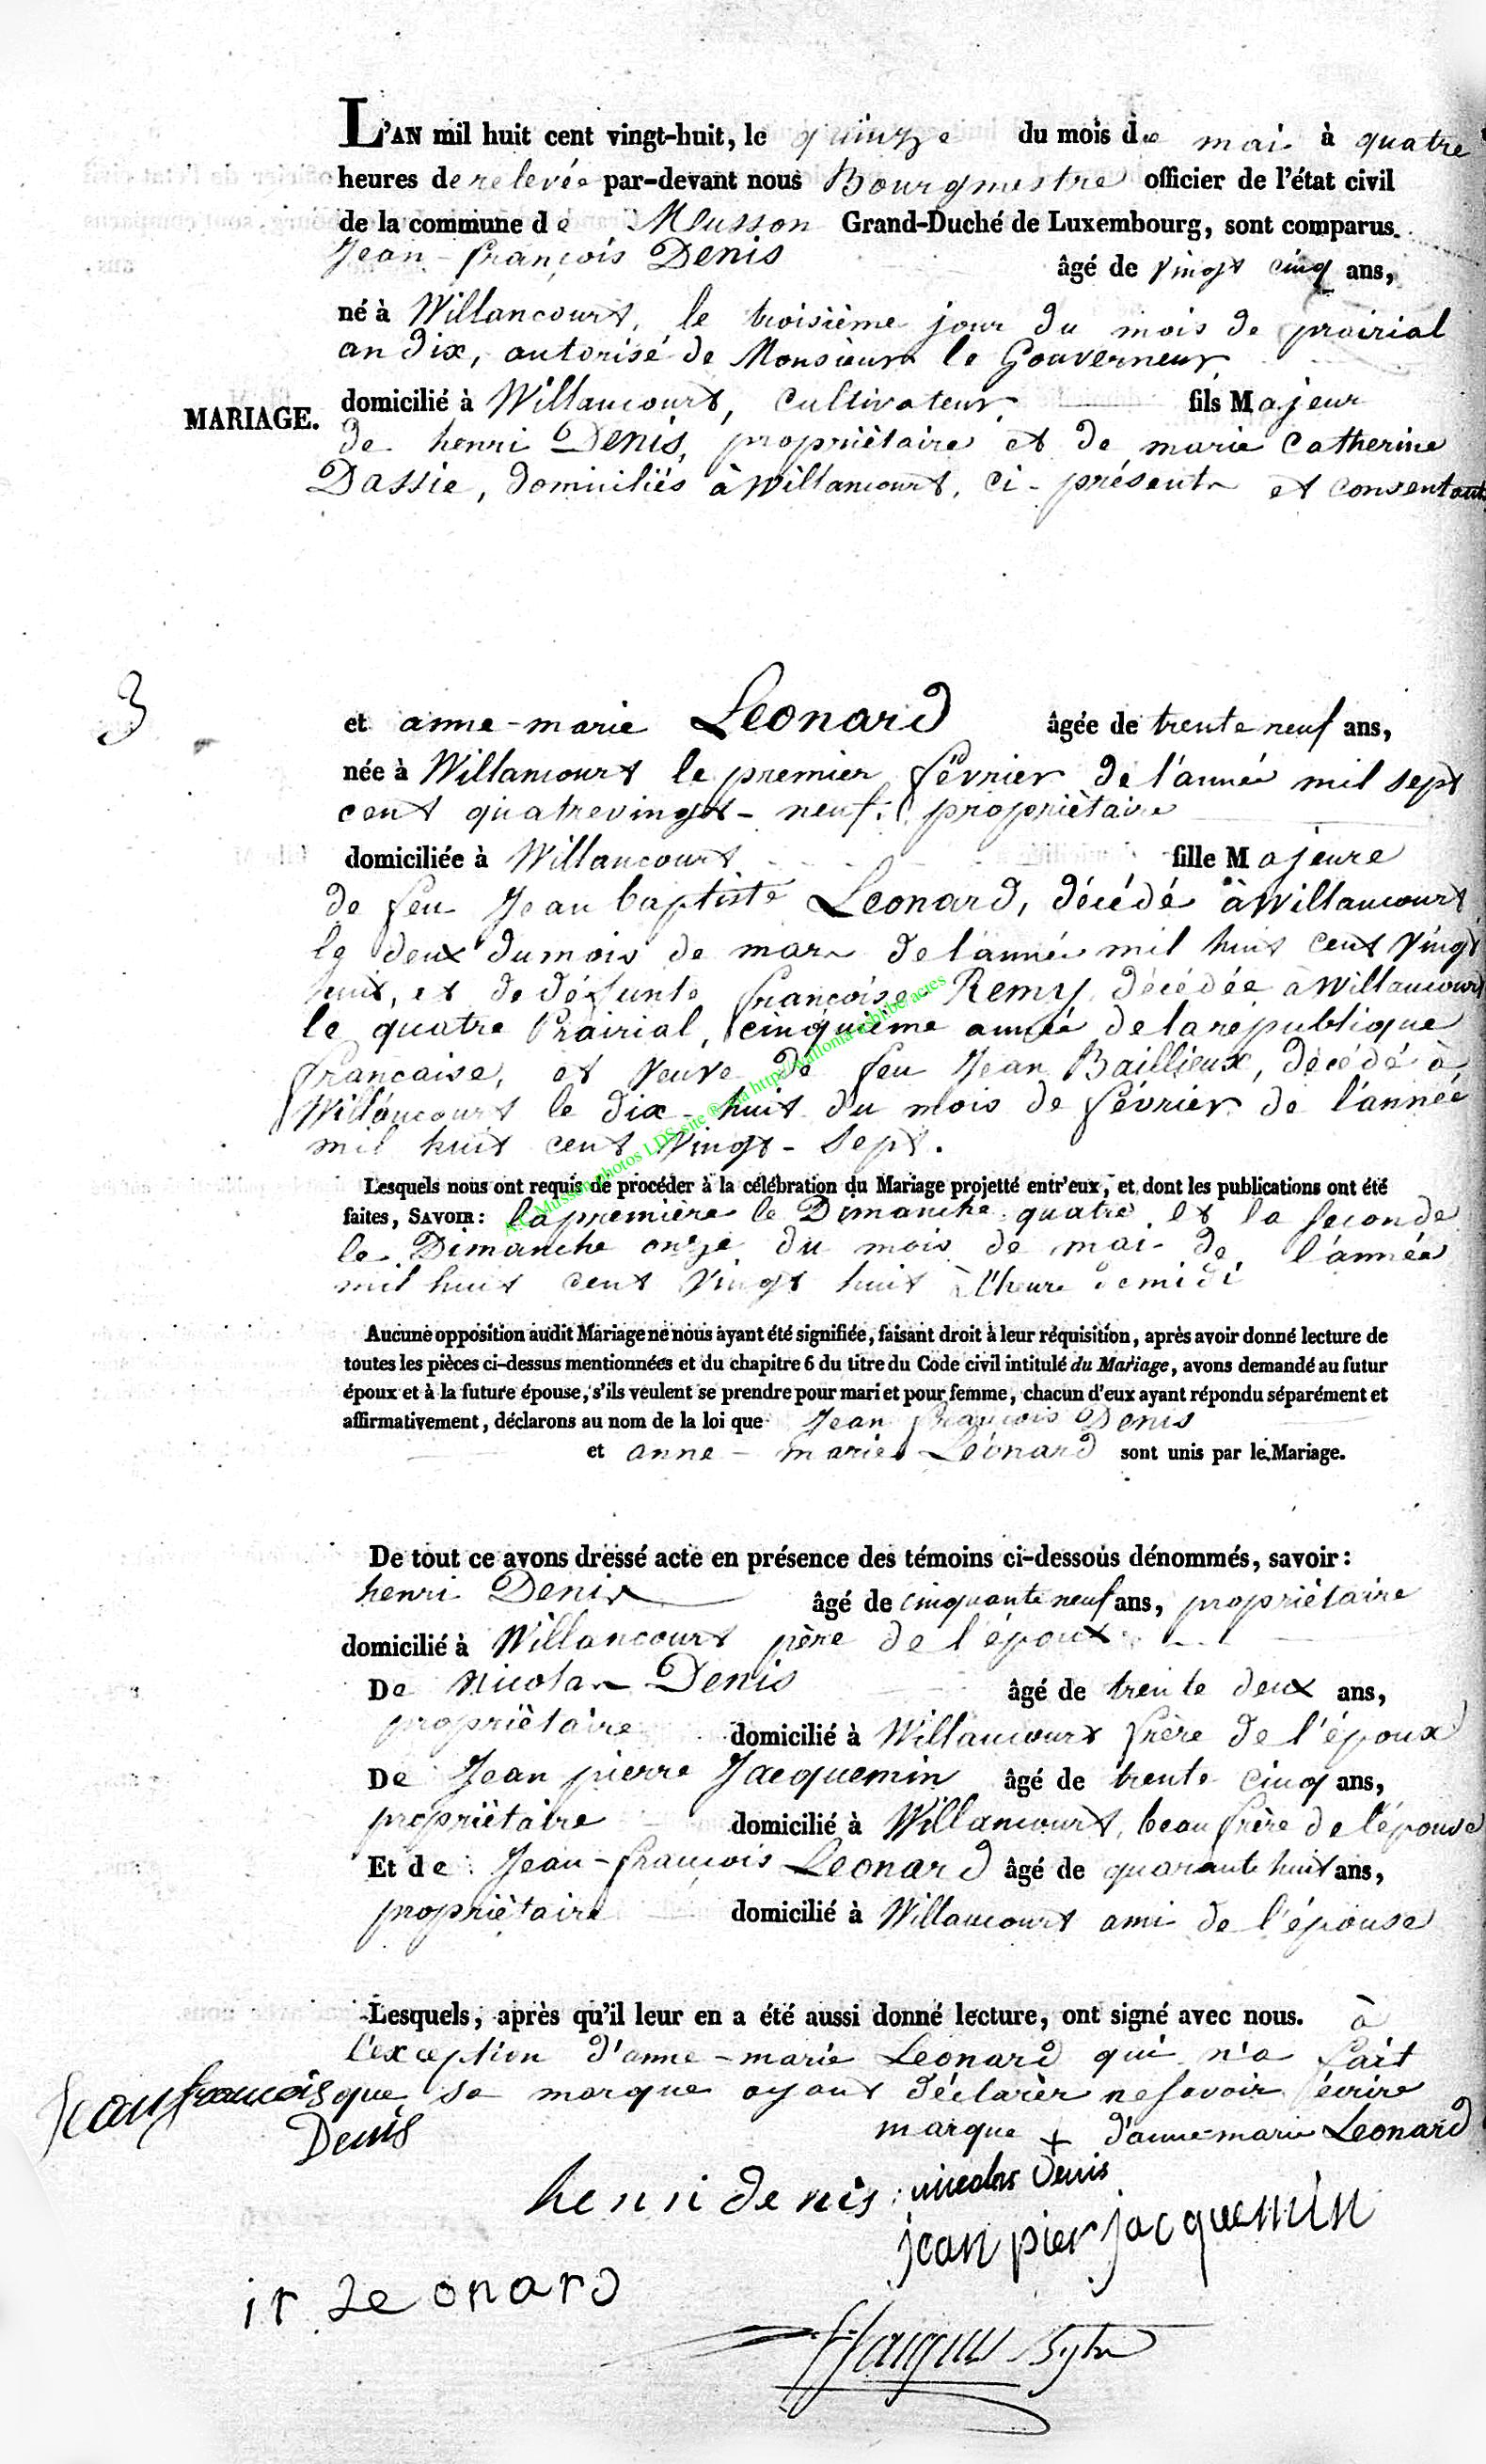 L'AN mil huit cent vingt-huit, le quinze du mois de mai à quatre
heures de relevée par-devant nous Bourgmestre officier de l'état civil
de la commune de Musson Grand-Duché de Luxembourg, sont comparus
Jean-françois Denis âgé de vingt cinq ans,
né à Willancourt, le troisième jour du mois de prairial
an dix, autorisé de Monsieur le Gouverneur
domicilié à Willancourt, Cultivateur fils Majeur
MARIAGE.
de henri Denis, propriètaire et de marie Catherine
Dassie, domiciliés à Willancourt, ci-présents et consentants
3
et anne-marie Leonard âgée de trente neuf ans,
née à Willancourt le premier février de l'année mil sept
cent quatrevingt-neuf, propriètaire
domiciliée à Willancourt fille Majeure
de feu Jean baptiste Leonard, décédé à Willancourt
le deux du mois de mars de l'année mil huit cent vingt
huit, et de défunte françoise Remy décédée à Willancourt
le quatre Prairial, cinquième année de la république
française, et veuve de feu Jean Baillieux, décédé à
Willancourt le dix-huit du mois de février de l'année
mil huit cent vingt-sept.
A.C Musson photos LDS site ® via http://wallonia-asbl.be/actes
Lesquels nous ont requis de procéder à la célébration du Mariage projetté entr'eux, et dont les publications ont été
faites, SAVOIR: la premiere le Dimanche quatre et la seconde
le Dimanche onze du mois de mai de l'année
mil huit cent vingt huit à l'heure de midi
Aucune opposition audit Mariage ne nous ayant été signifiée, faisant droit à leur réquisition, après avoir donné lecture de
toutes les pièces ci-dessus mentionnées et du chapitre 6 du titre du Code civil intitulé du Mariage, avons demandé au futur
époux et à la future épouse, s'ils veulent se prendre pour mari et pour femme, chacun d'eux ayant répondu séparément et
affirmativement, déclarons au nom de la loi que Jean françois Denis
et anne-marie Léonard sont unis par le Mariage.
De tout ce avons dressé acte en présence des témoins ci-dessous dénommés, savoir:
henri Denis âgé de cinquante neuf ans, propriètaire
domicilié à Willancourt père de l'époux
De Nicolas Denis âgé de trente deux ans,
propriètaire domicilié à Willancourt frère de l'époux
De Jean pierre Jacquemin âgé de trente cinq ans,
propriètaire domicilié à Willancourt, beau frère de l'épouse
Et de Jean-françois Leonard âgé de quarante huit ans,
propriètaire domicilié à Willancourt ami de l'épouse
Lesquels, après qu'il leur en a été aussi donné lecture, ont signé avec nous. à
l'exception d'anne-marie Leonard qui n'a fait
que sa marque ayant déclarèr ne savoir écrire
Jean francois
Denis
marque + d'anne-marie Leonard
henri denis nicolas Denis
jean pier jacquemin
Leonard